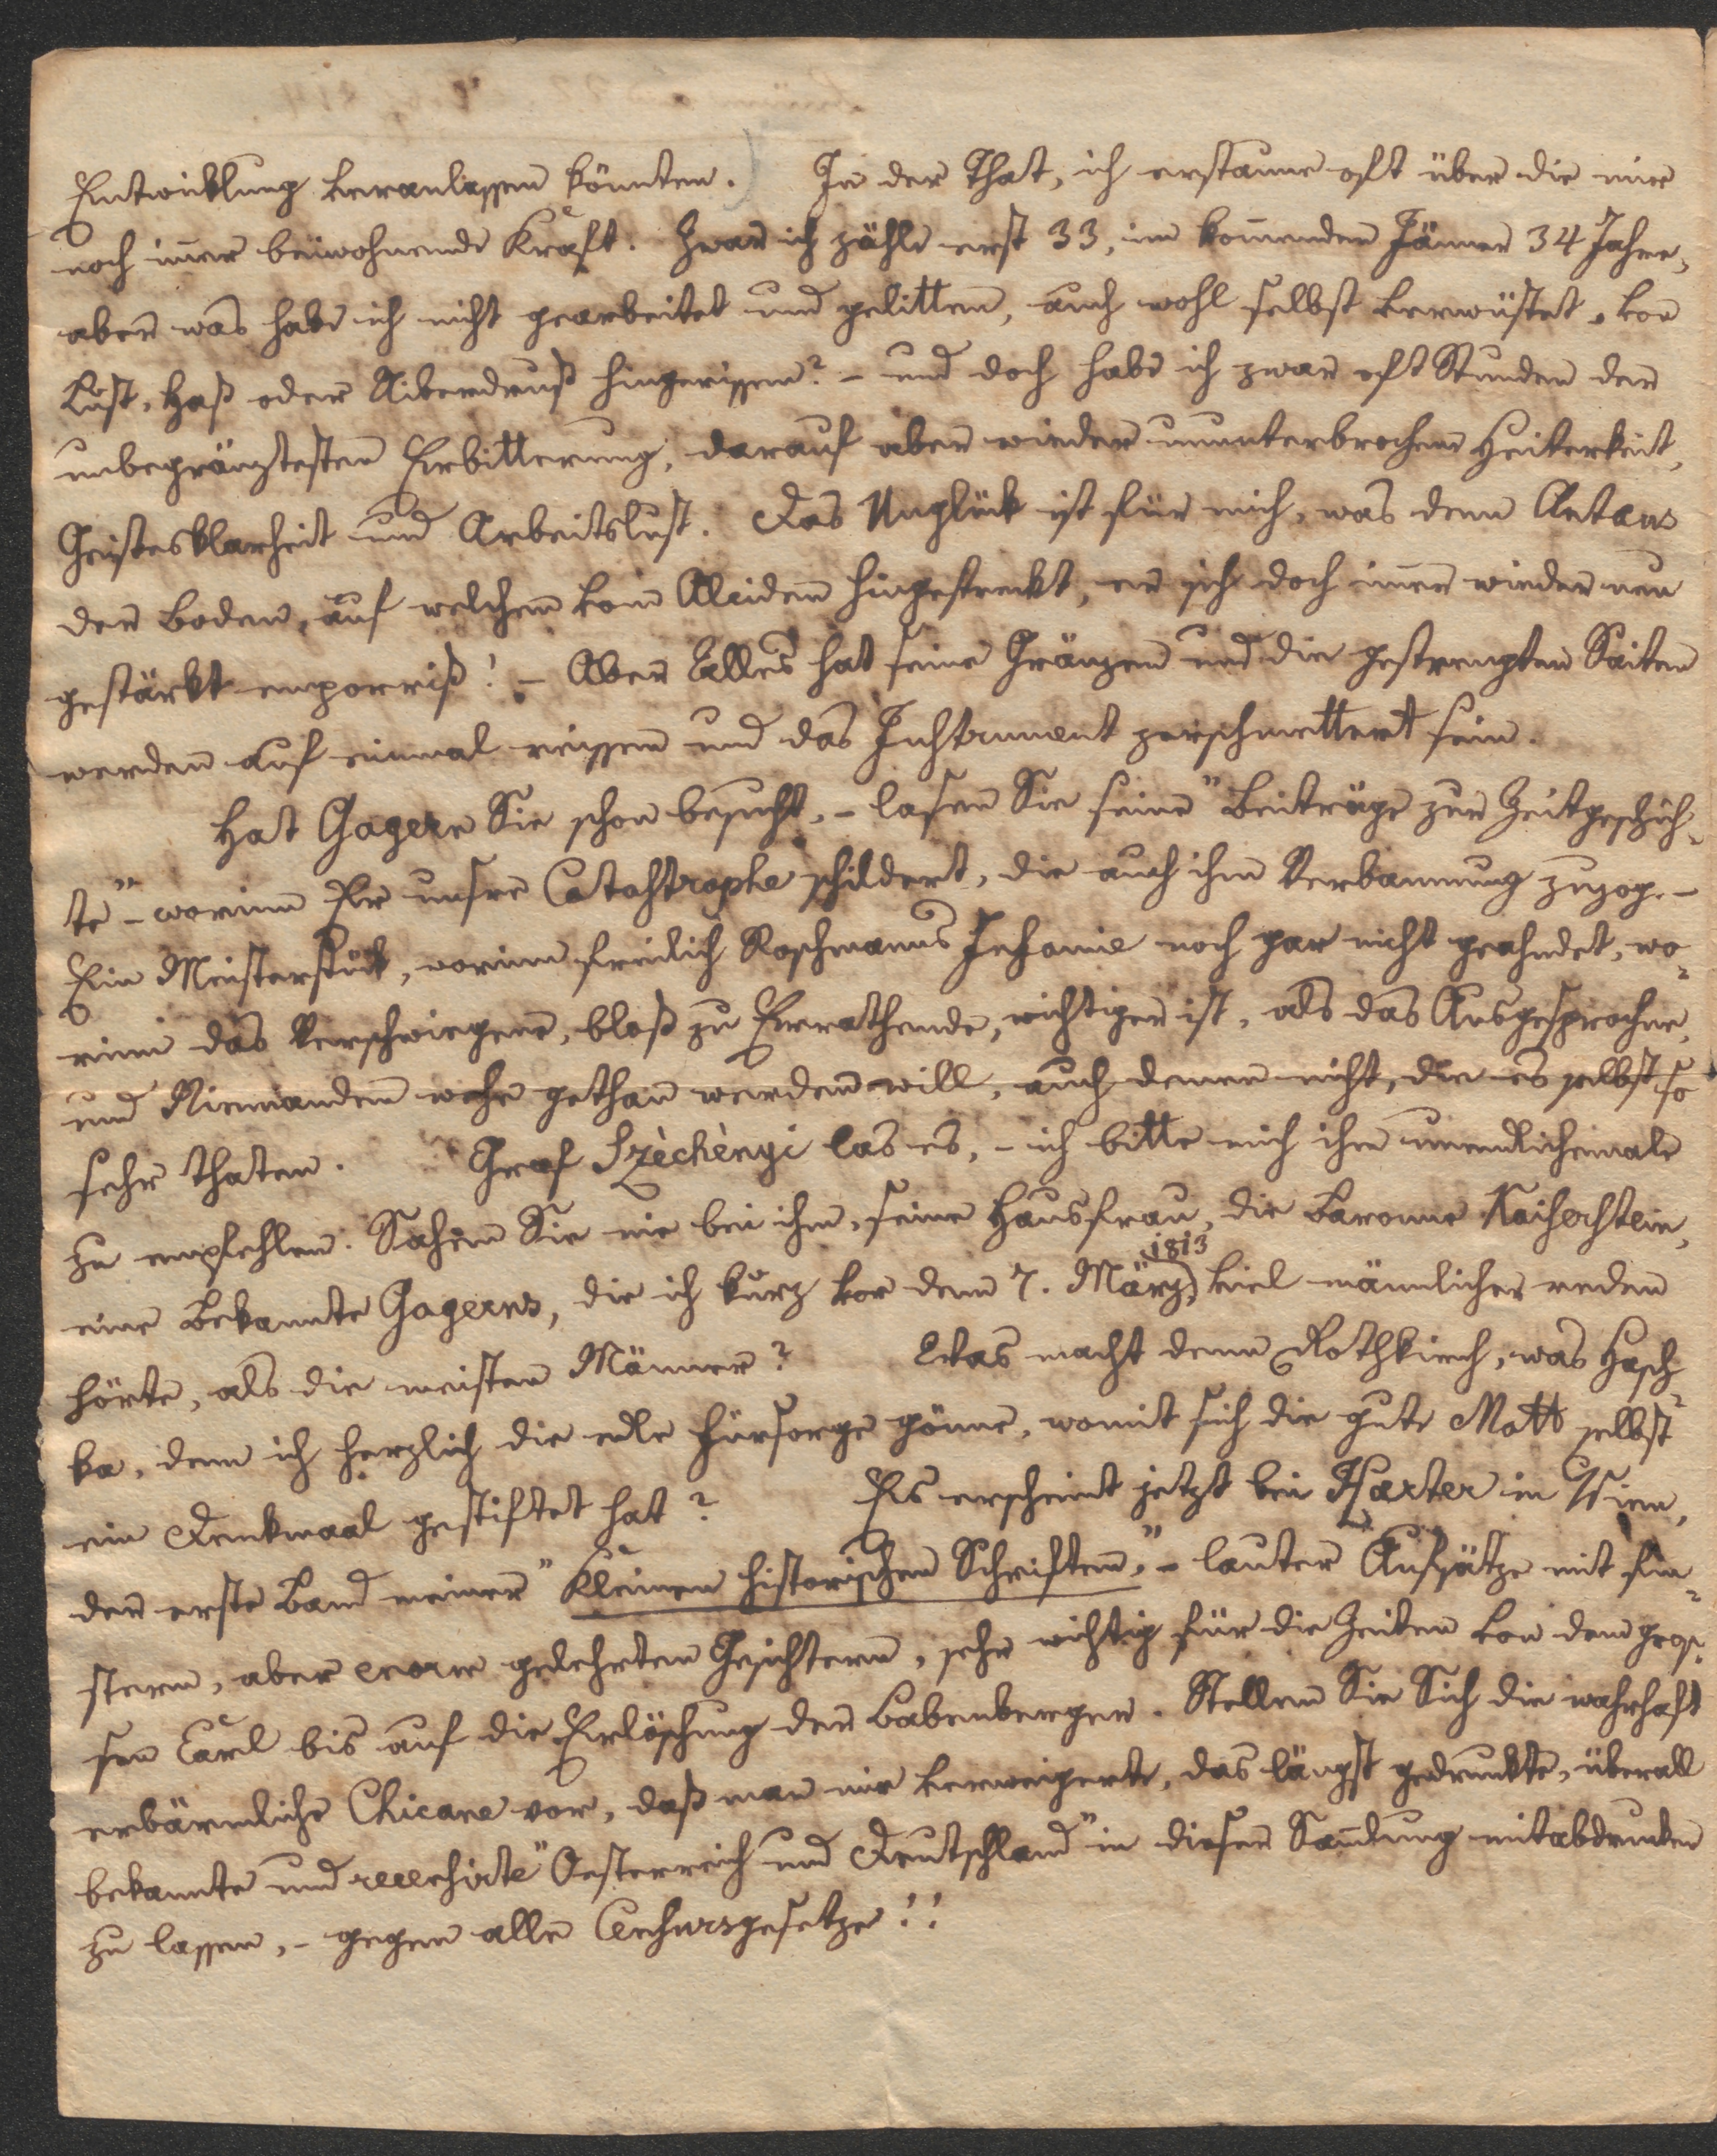 Entwicklung veranlassen könnten.) In der That, ich erstaune oft über die mir
noch im̄er beiwohnende Kraft. Zwar ich zähle erst 33, im kom̄enden Jänner 34 Jahre,
aber was habe ich nicht gearbeitet und gelitten, auch wohl selbst verwüstet, von
Lust, Haß oder Uiberdruß hingerissen? – und doch habe ich zwar oft Stunden der
unbegränztesten Erbitterung, darauf aber wieder ununterbrochene Heiterkeit,
Geistesklarheit und Arbeitslust. Das Unglück ist für mich, was dem Antæus
der Boden, auf welchem vom Alciden hingestreckt, er sich doch im̄er wieder neu
gestärkt emporriß! – Aber Alles hat seine Gränzen und die gestrengten Saiten
werden auf einmal reissen und das Instrument zerschmettert sein.
Hat Gagern Sie schon besucht, – lasen Sie seine "Beiträge zur Zeitgeschich-
te" – worinn Er unsre Catastrophe schildert, die auch ihm Verbannung zuzog. –
Ein Meisterstück, worinn freilich Roschmanns Infamie noch gar nicht geahndet, wo-
rinn das Verschwiegene, bloß zu Errathende, wichtiger ist, als das Ausgesprochne,
und Niemandem wehe gethan werden will, auch denen nicht, die es selbst so
sehr thaten. Graf Szèchènyi las es, – ich bitte mich ihm unendlichemale
zu empfehlen. Sahen Sie nie bei ihm, seine Hausfrau, die Baronne Kaiserstein,
eine Bekannte Gagerns, die ich kurz vor dem 7. März 1813, viel männlicher reden
hörte, als die meisten Männer? Was macht denn Rothkirch, was Hasch-
ka, dem ich herzlich die edle Fürsorge gönne, womit sich die gute Matt selbst
ein Denkmaal gestiftet hat? Es erscheint jetzt bei Härter in Wien,
der erste Band meiner "Kleinen historischen Schriften," – lauter Aufsätze mit fin-
stern, aber enorm gelehrten Gesichtern, sehr wichtig für die Zeiten von dem gros-
sen Carl bis auf die Erlöschung der Babenberger. Stellen Sie Sich die wahrhaft
erbärmliche Chicane vor, daß man mir verweigerte, das längst gedruckte, überall
bekannte und recensirte "Oesterreich und Deutschland" in dieser Sam̄lung mitabdrucken
zu lassen, – gegen alle Censursgesetze!!